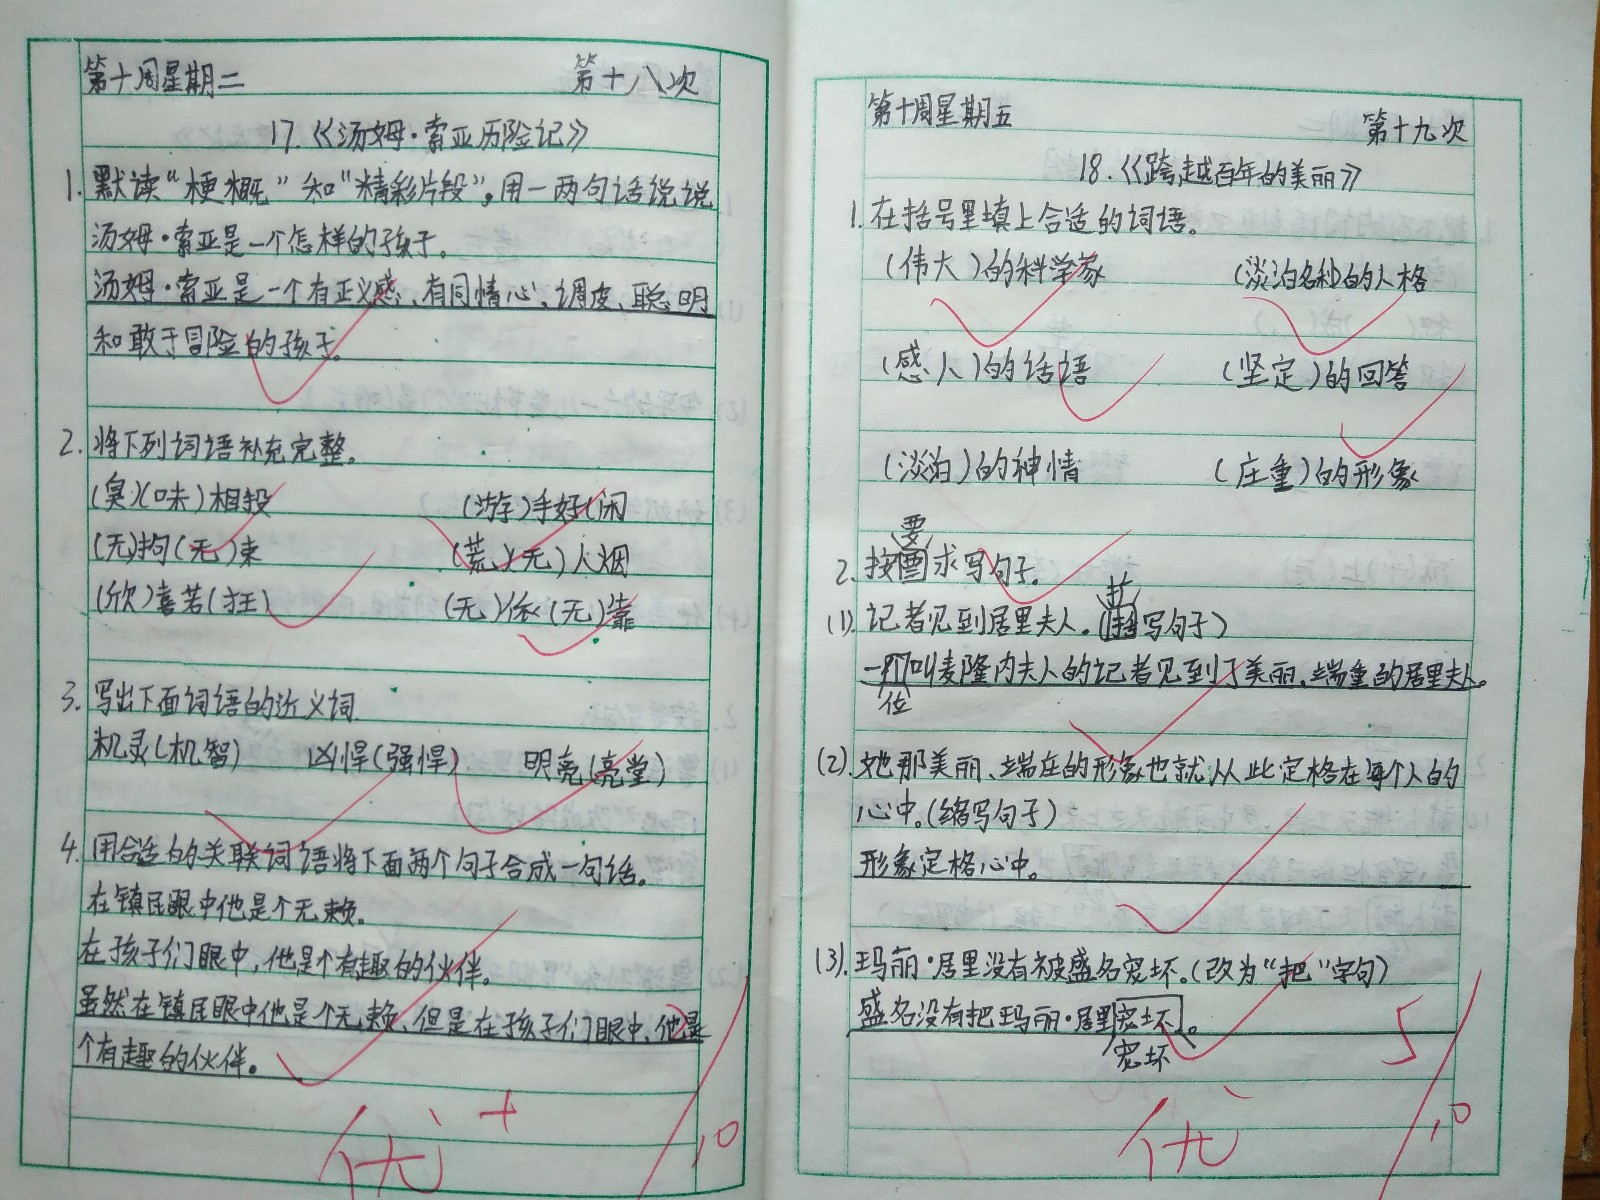 第十周星期二 第十八次
17.《汤姆·索亚历险记》
1. 默读“梗概”和“精彩片段”，用一两句话说说
汤姆·索亚是一个怎样的孩子。
汤姆·索亚是一个有正义感、有同情心、调皮、聪明
和敢于冒险的孩子。
2. 将下列词语补充完整。
(臭)(味)相投 (游)手好(闲
(无)拘(无)束 (荒)(无)人烟
(欣)喜若(狂) (无)依(无)靠
3. 写出下面词语的近义词
机灵(机智) 凶悍(强悍) 明亮(亮堂)
4. 用合适的关联词语将下面两个句子合成一句话。
在镇民眼中他是个无赖。
在孩子们眼中,他是个有趣的伙伴。
虽然在镇民眼中他是个无赖,但是在孩子们眼中,他是
个有趣的伙伴。
优+
10
第十周星期五 第十九次
18.《跨越百年的美丽》
1. 在括号里填上合适的词语。
(伟大)的科学家 (淡泊名利)的人格
(感人)的话语 (坚定)的回答
(淡泊)的神情 (庄重)的形象
要
2. 按求写句子.
扩
(1). 记者见到居里夫人。(写句子)
一个叫麦隆内夫人的记者见到了美丽、端重的居里夫人。
位
(2). 她那美丽、端庄的形象也就从此定格在每个人的
心中。(缩写句子)
形象定格心中。
(3). 玛丽·居里没有被盛名宠坏。(改为“把”字句)
盛名没有把玛丽·居里宠坏。
宠坏
5
优
10